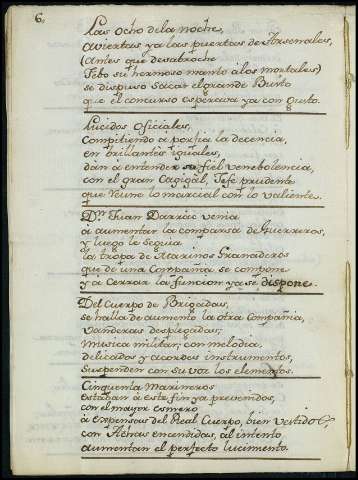 6.
Las ocho dela noche,
aviertas ya las puertas de Arsenales,
(antes que desabroche
Febo su hermoso manto álos mortales)
se dispuso sacar el grande Busto
que el concurso esperava ya con gusto.
Lucidos oficiales,
Compitiendo á porfia la decencia,
en brillantes iguales,
dán á entender su fiel venebolencia,
con el gran Cagigál, Gefe prudente
que reune lo marcial con lo valiente.
Dn. Juan Darrác venia
á aumentar la compansa de Guerreros,
y luego le seguia
la tropa de Marinos Granaderos
que de una Compañia se compone
y a cerrar la funcion ya se dispone.
Del Cuerpo de Brigadas,
se halla de aumento la otra Compañia,
vanderas desplegadas;
musica militar, con melodia,
delicados y acordes instrumentos,
suspenden con su voz los elementos.
Cinquenta Marineros
estaban á este fin ya prevenidos,
con el mayor esmero
á expensas del Real Cuerpo, bien vestidos,
con Achas encendidas, al intento
aumentan el perfecto lucimento.